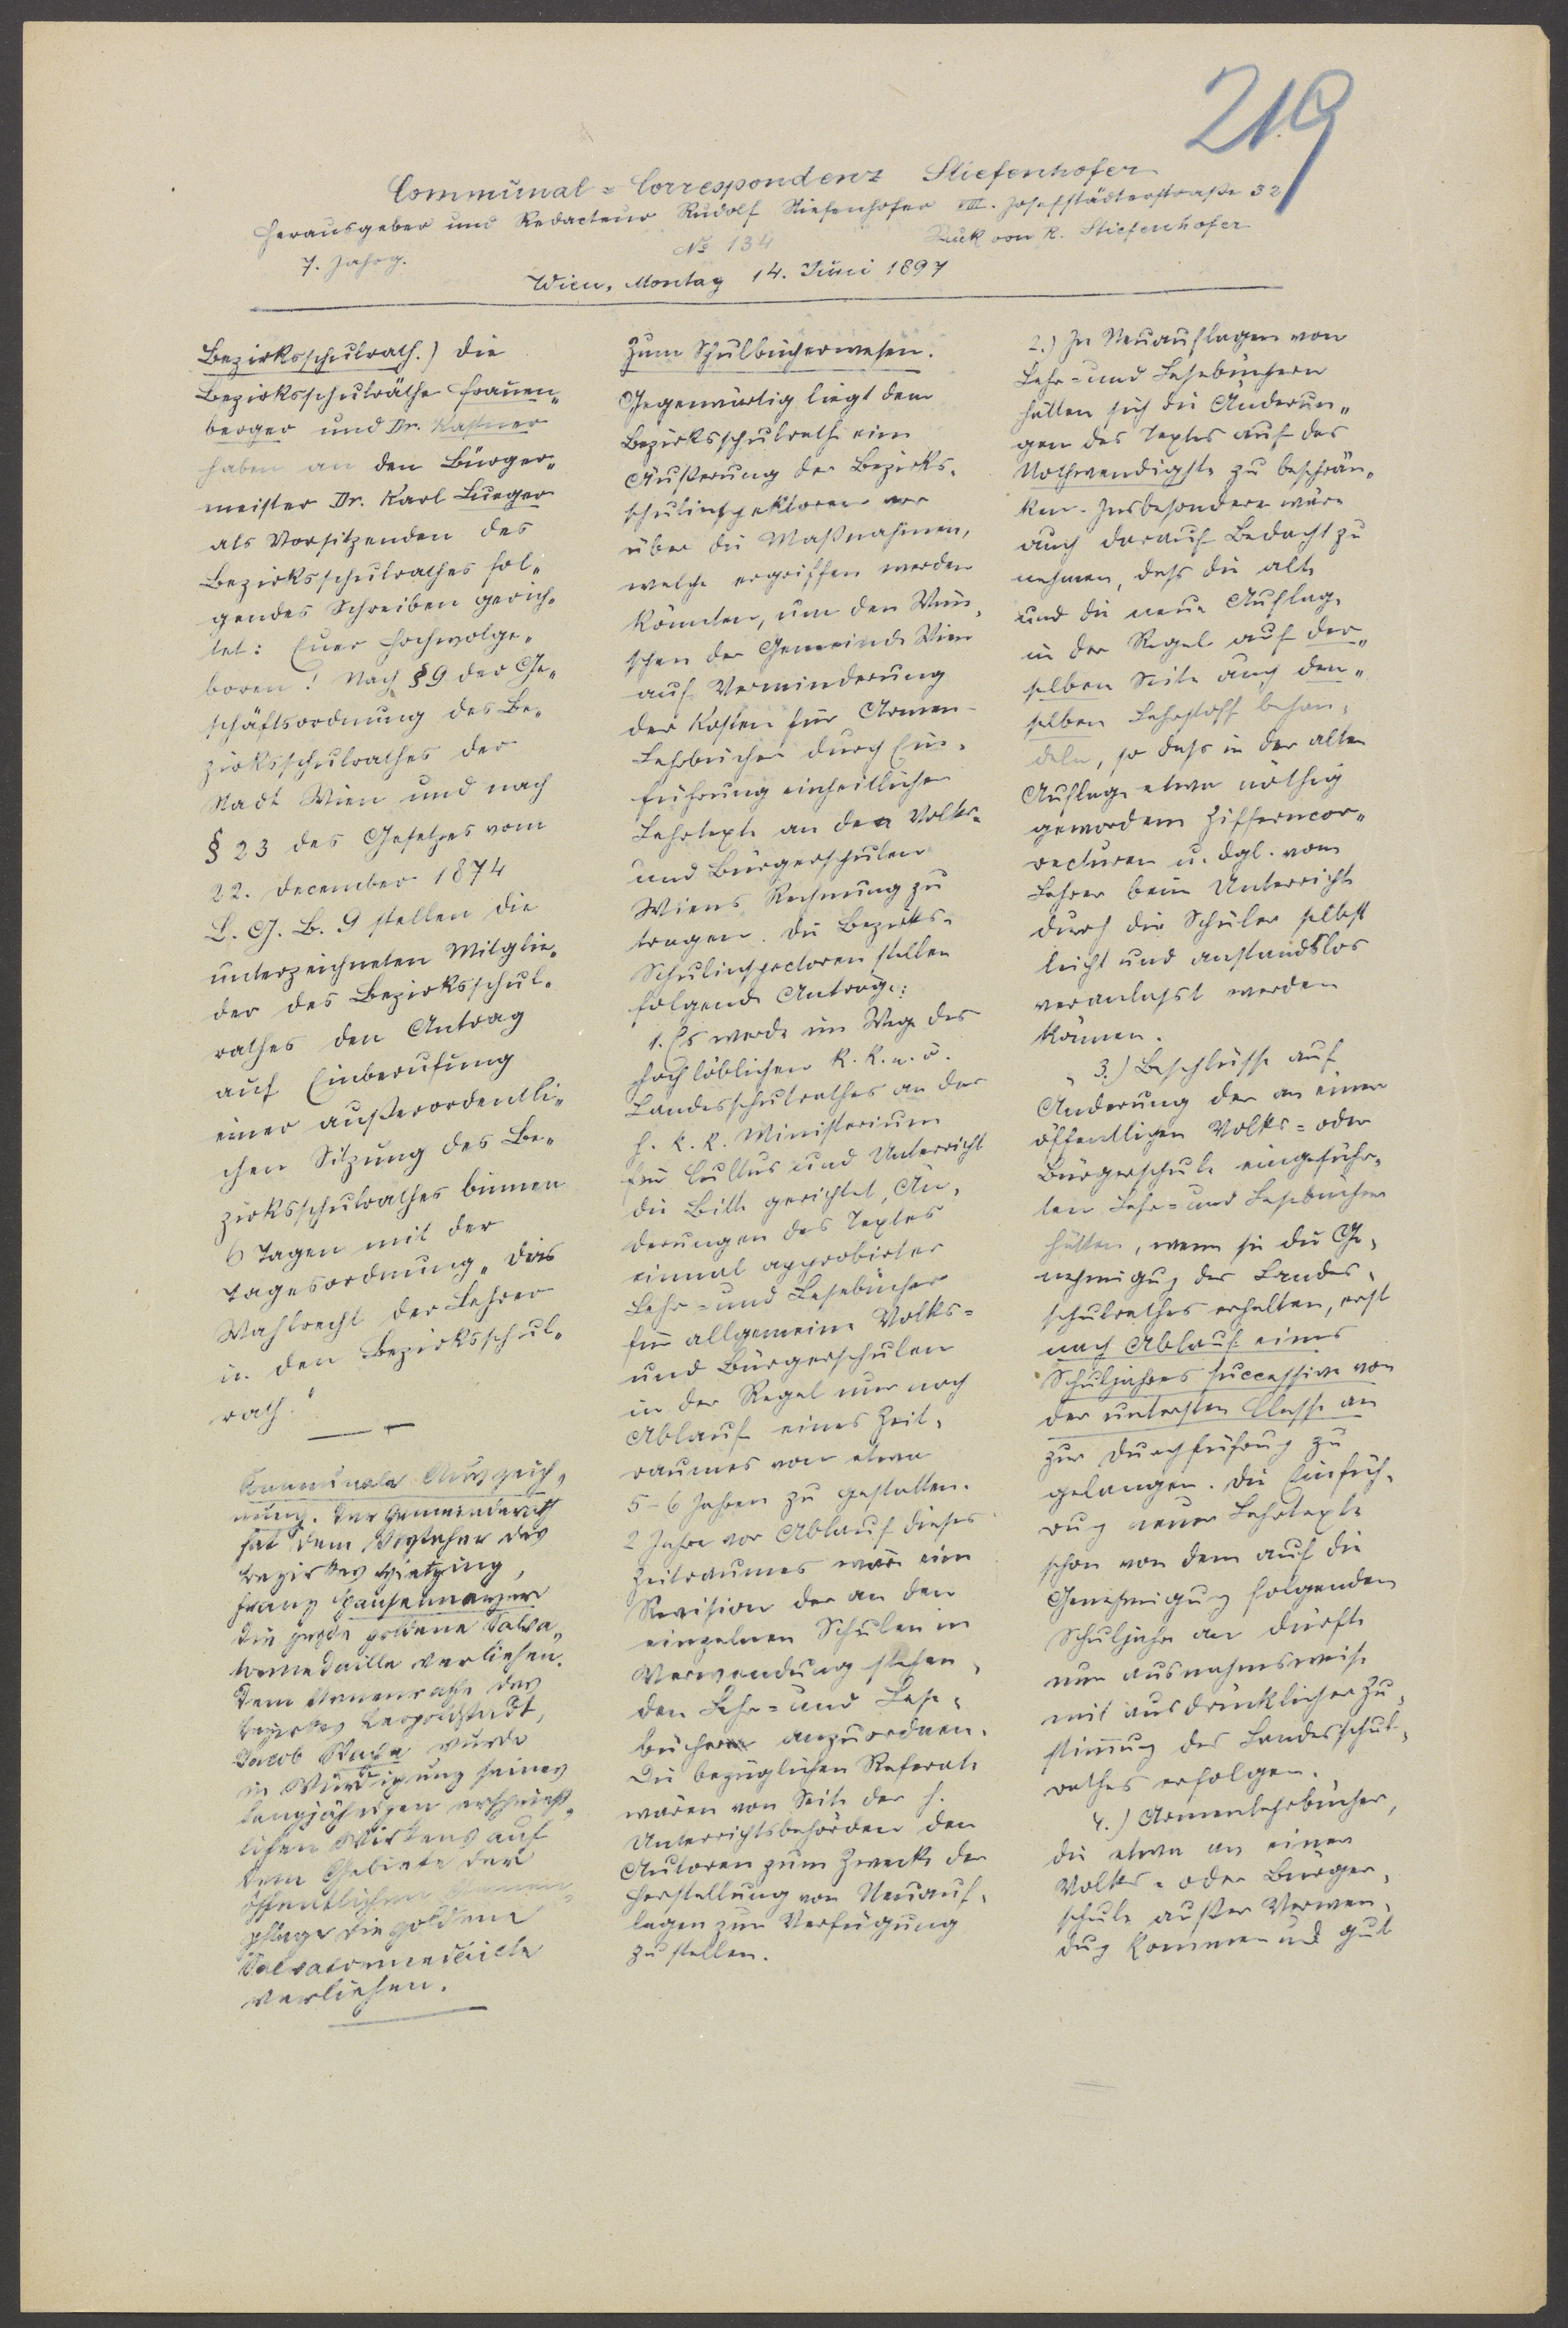 219
Communal=Correspondenz Stiefenhofer
Herausgeber und Redacteur Rudolf Stiefenhofer VIII. Josefstädterstraße 32
7. Jahrg.
No 134
Druk von R. Stiefenhofer
Wien, Montag 14. Juni 1897
Bezirksschulrath.) Die
Bezirksschulräthe Frauen„
berger und Dr. Kastner
haben an den Bürger„
meister Dr. Karl Lueger
als Vorsitzenden des
Bezirksschulrathes fol„
gendes Schreiben gerich„
tet: Euer Hochwolge„
boren! Nach § 9 der Ge„
schäftsordnung des Be„
zirksschulrathes der
Stadt Wien und nach
§ 23 des Gesetzes vom
22. December 1874
L. G. B. 9 stellen die
unterzeichneten Mitglie„
der des Bezirksschul„
rathes den Antrag
auf Einberufung
einer außerordentli„
chen Sitzung des Be„
zirksschulrathes binnen
6 Tagen mit der
Tagesordnung „Das
Wahlrecht der Lehrer
in den Bezirksschul„
rath."
Communale Auszeich„
nung. Der Gemeinderath
hat dem Vorsteher des
Bezirkes Hietzing,
Franz Hauselmayer
die große goldene Salva„
tormedaille verliehen.
Dem Armenrathe des
Bezirkes Leopoldstadt,
Jacob wurde
in Würdigung seines
langjährigen ersprieß„
lichen Wirkens auf
dem Gebiete der
öffentlichen Armen„
pflege die goldene
Salvatormedaille
verliehen.
Zum Schulbücherwesen.
Gegenwärtig liegt dem
Bezirksschulrathe eine
Äußerung der Bezirks„
schulinspektoren vor
über die Maßnahmen,
welche ergriffen werden
könnten, um den Wün„
schen der Gemeinde Wien
auf Verminderung
der Kosten für Armen-
Lehrbücher durch Ein„
führung einheitlicher
Lehrtexte an den Volks-
und Bürgerschulen
Wiens Rechnung zu
tragen. Die Bezirks-
Schulinspectoren stellen
folgende Anträge:
1. Es werde im Wege des
hochlöblichen k. k. n. ö.
Landesschulrathes an das
h. k. k. Ministerium
für Cultus und Unterricht
die Bitte gerichtet, Än„
derungen des Textes
einmal approbirter
Lehr= und Lesebücher
für allgemeine Volks=
und Bürgerschulen
in der Regel nur nach
Ablauf eines Zeit„
raumes von etwa
5-6 Jahren zu gestatten.
2 Jahre vor Ablauf dieses
Zeitraumes wäre eine
Revision der an den
einzelnen Schulen in
Verwendung stehen„
den Lehr= und Lese„
bücher anzuordnen.
Die bezüglichen Referate
wären von Seite der h.
Unterrichtsbehörden den
Autoren zum Zwecke der
Herstellung von Neuauf„
lagen zur Verfügung
zu stellen.
2.) In Neuauflagen von
Lehr= und Lesebüchern
hätten sich die Änderun„
gen des Textes auf das
Nothwendigste zu beschrän„
ken. Insbesondere wäre
auch darauf Bedacht zu
nehmen, daß die alte
und die neue Auflage
in der Regel auf der„
selben Seite auch den„
selben Lehrstoff behan„
deln, so daß in der alten
Auflage etwa nöthig
gewordene Zifferncor„
recturen u. dgl. vom
Lehrer beim Unterrichte
durch die Schüler selbst
leicht und anstandslos
veranlaßt werden
können.
3.) Beschlüsse auf
Änderung der an einer
öffentlichen Volks= oder
Bürgerschule eingeführ„
ten Lehr= und Lesebücher
hätten, wenn sie die Ge„
nehmigung des Landes„
schulrathes erhalten, erst
nach Ablauf eines
Schuljahres successive von
der untersten Classe an
zur Durchführung zu
gelangen. Die Einfüh„
rung neuer Lehrtexte
schon von dem auf die
Genehmigung folgenden
Schuljahre an dürfte
nur ausnahmsweise
mit ausdrücklicher Zu„
stimmung des Landesschul„
rathes erfolgen.
4.) Armenlehrbücher,
die etwa an einer
Volks= oder Bürger„
schule außer Verwen„
dung kommen und gut